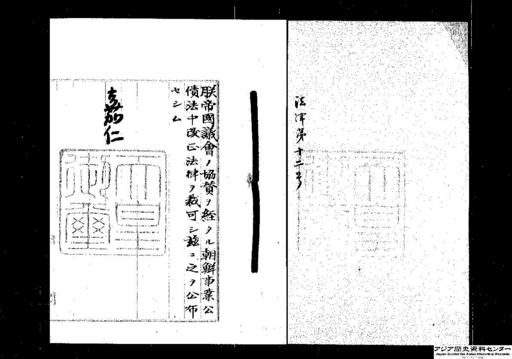 法律第十二号
朕帝國議會ノ協賛ヲ経タル朝鮮事業公
債法中改正法律ヲ裁可シ茲ニ之ヲ公布
セシム
嘉仁
天皇
御璽
アジア歴史資料センター
Japan Center for Asian Historical Records